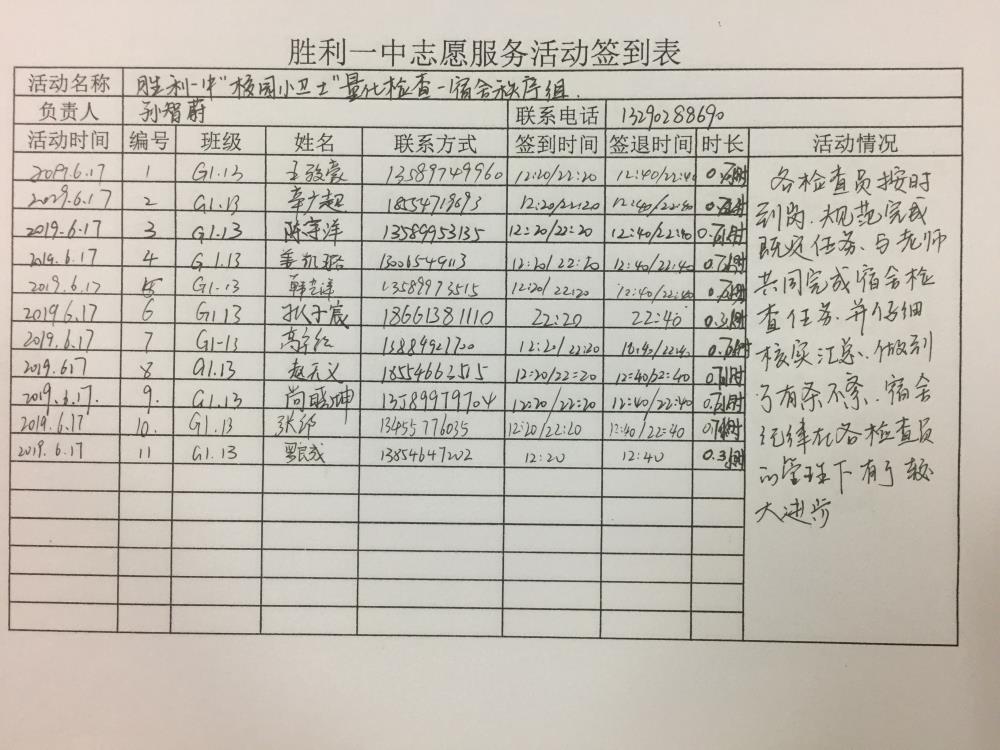 胜利一中志愿服务活动签到表
活动名称 胜利一中“校园小卫士”量化检查-宿舍秩序组.
负责人 孙智蔚 联系电话 13290288690
活动时间 编号 班级 姓名 联系方式 签到时间 签退时间 时长 活动情况
2019.6.17 1 G1.13 13589749960 12:20/22:20 12:40/22:40
2019.6.17 2 G1.13 辛广超 12:20/22:20 12:40/22:40
2019.6.17 3 G1.13 陈宇洋 13589953135 12:20/22:20 12:40/22:40
2019.6.17 4 G1.13 姜凯璐 13006549113 12:20/22:20 12:40/22:40
2019.6.17 5 G1-13 13589973515 12:20/22:20 12:40/22:40
2019.6.17 6 G1.13 孙子宸 18661381110 22:20 22:40 0.3小时
2019.6.17 7 G1-13 12:20/22:20
2019.617 8 G1.13 赵天义 18554663515 12:20/22:20 12:40/22:40
2019.6.17. 9. G1.13 尚聪坤 13589979704 12:20/22:20 12:40/22:40
2019.6.17 10. G1.13 13455776035 12:20/22:20 12:40/22:40
2019.6.17 11 G1.13 13854647202 12:20 12:40 0.3小时
各检查员按时
到岗.规范完成
既定任务.与老师
共同完成宿舍检
查任务.并仔细
核实汇总.做到
了有条不紊.宿舍
纪律在各检查员
的管理下有了较
大进步